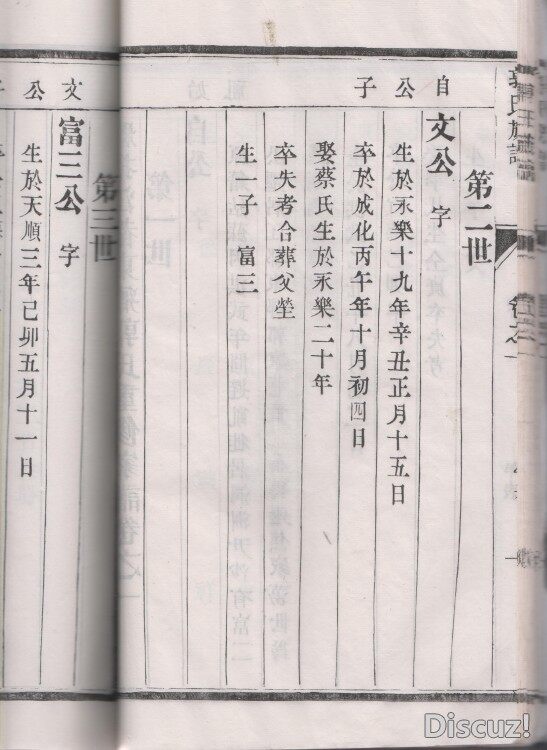 郭氏族譜
卷之一
第二世
自公子
文公 字
生於永樂十九年辛丑正月十五日
卒於成化丙午年十月初四日
娶蔡氏生於永樂二十年
卒失考合葬父塋
生一子 富三
第三世
文公子
富三公 字
生於天順三年己卯五月十一日
Discuz!